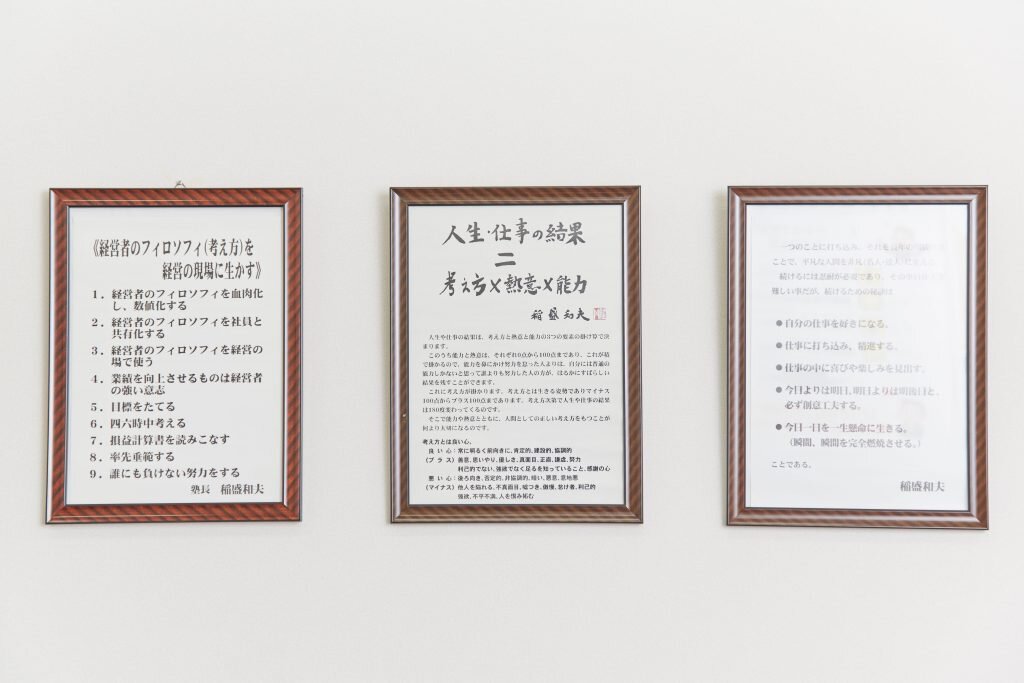 《経営者のフィロソフィ(考え方)を
経営の現場に生かす》
1．経営者のフィロソフィを血肉化
し、数値化する
2．経営者のフィロソフィを社員と
共有化する
3．経営者のフィロソフィを経営の
場で使う
4．業績を向上させるものは経営者
の強い意志
5．目標をたてる
6．四六時中考える
7．損益計算書を読みこなす
8．率先垂範する
9．誰にも負けない努力をする
塾長 稲盛和夫
人生・仕事の結果
=
考え方×熱意×能力
稲盛和夫
人生や仕事の結果は、考え方と熱意と能力の3つの要素の掛け算で決
まります。
このうち能力と熱意は、それぞれ0点から100点まであり、これが積
で掛かるので、能力を鼻にかけ努力を怠った人よりは、自分には普通の
能力しかないと思って誰よりも努力した人の方が、はるかにすばらしい
結果を残すことができます。
これに考え方が掛かります。考え方とは生きる姿勢でありマイナス
100点からプラス100点まであります。考え方次第で人生や仕事の結果
は180度変わってくるのです。
そこで能力や熱意とともに、人間としての正しい考え方をもつことが
何より大切になるのです。
考え方とは良い心、
良い心：常に明るく前向きに、肯定的、建設的、協調的
(プラス) 善意、思いやり、優しさ、真面目、正直、謙虚、努力
利己的でない、強欲でなく足るを知っていること、感謝の心
悪い心：後ろ向き、否定的、非協調的、暗い、悪意、意地悪
(マイナス) 他人を陥れる、不真面目、嘘つき、傲慢、怠け者、利己的
強欲、不平不満、人を恨み妬む
一つのことに打ち込み、それを長年の
ことで、平凡な人間を非凡
続けるには忍耐が必要であり、その
難しい事だが、続けるための秘訣は
●自分の仕事を好きになる。
●仕事に打ち込み、精進する。
●仕事の中に喜びや楽しみを見出す。
●今日よりは明日、明日よりは明後日と、
必ず創意工夫する。
●今日一日を一生懸命に生きる。
(瞬間、瞬間を完全燃焼させる。)
ことである。
稲盛和夫